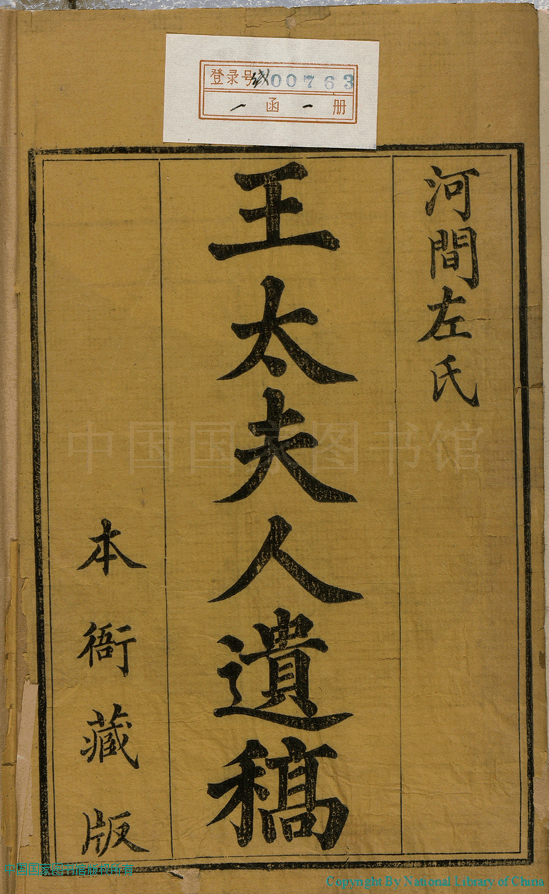 登录号 线00763
一函一册
河間左氏
王太夫人遺稿
本衙藏版
中国国家图书馆
Copyright By National Library of China